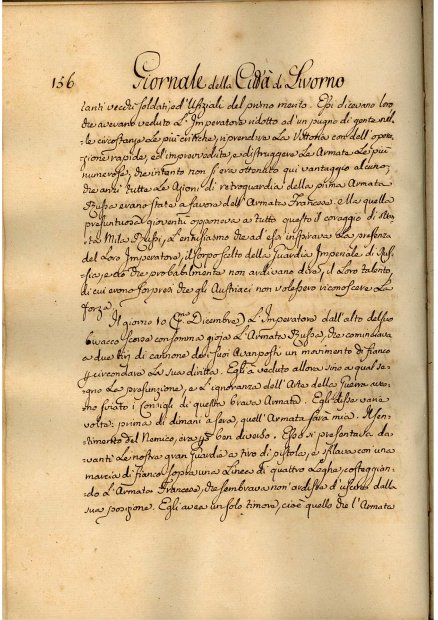 156 Giornale della Città di Livorno
tanti vecchi soldati ed Ufiziale del primo merito. Essi dicevano loro
che avevano veduto L'Imperatore ridotto ad un pugno di gente nel-
le circostanze le più critiche, riprendere La Vittoria con dell'opera-
zione rapide, ed imprevedute, e distruggere Le Armate Le più
numerose; che intanto non s'era ottenuto qui vantaggio alcuno;
che anzi tutte Le Azioni di retroguardia della prima Armata
Russa erano state a favore dell'Armata Francese. Alla quella
presuntuosa gioventù opponeva a tutto questo il coraggio di
Mila Russi, L'entusiasmo che ad essi inspirava La presenza
del Loro Imperatore, il Corpo scelto della Guardia Imperiale di Rus-
sia, e ciò che probabilmente non ardivano dire, il Loro talento,
di cui erono sorpresi che gli Austriaci non volessero riconoscere La
forza.
Il giorno 10 Dicembre) L'Imperatore dall'alto del suo
bivacco scorse con somma gioja L'Armata Russa, che cominciava
a due tiri di cannone dei suoi Avanposti un movimento di fianco
p. circondare La sua diritta. Egli à veduto allora sino a qual se-
gno La presunzione, e L'ignoranza dell'Arte della Guerra aves-
no i Consigli di questa brava Armata. Egli disse varie
volte: prima di dimani a sera, quell'Armata sarà mia. Il sen-
timento del Nemico, era ben diverso. Esso si presentava da-
vanti Le nostre gran Guardie a tiro di pistola, e sfilava con una
marcia di fianco sopra una Linea di quattro Leghe, costeggian-
do L'Armata Francese, che sembrava non ardisse d'uscire dalla
sua posizione. Egli avea un solo timore, cioè quello che l'Armata